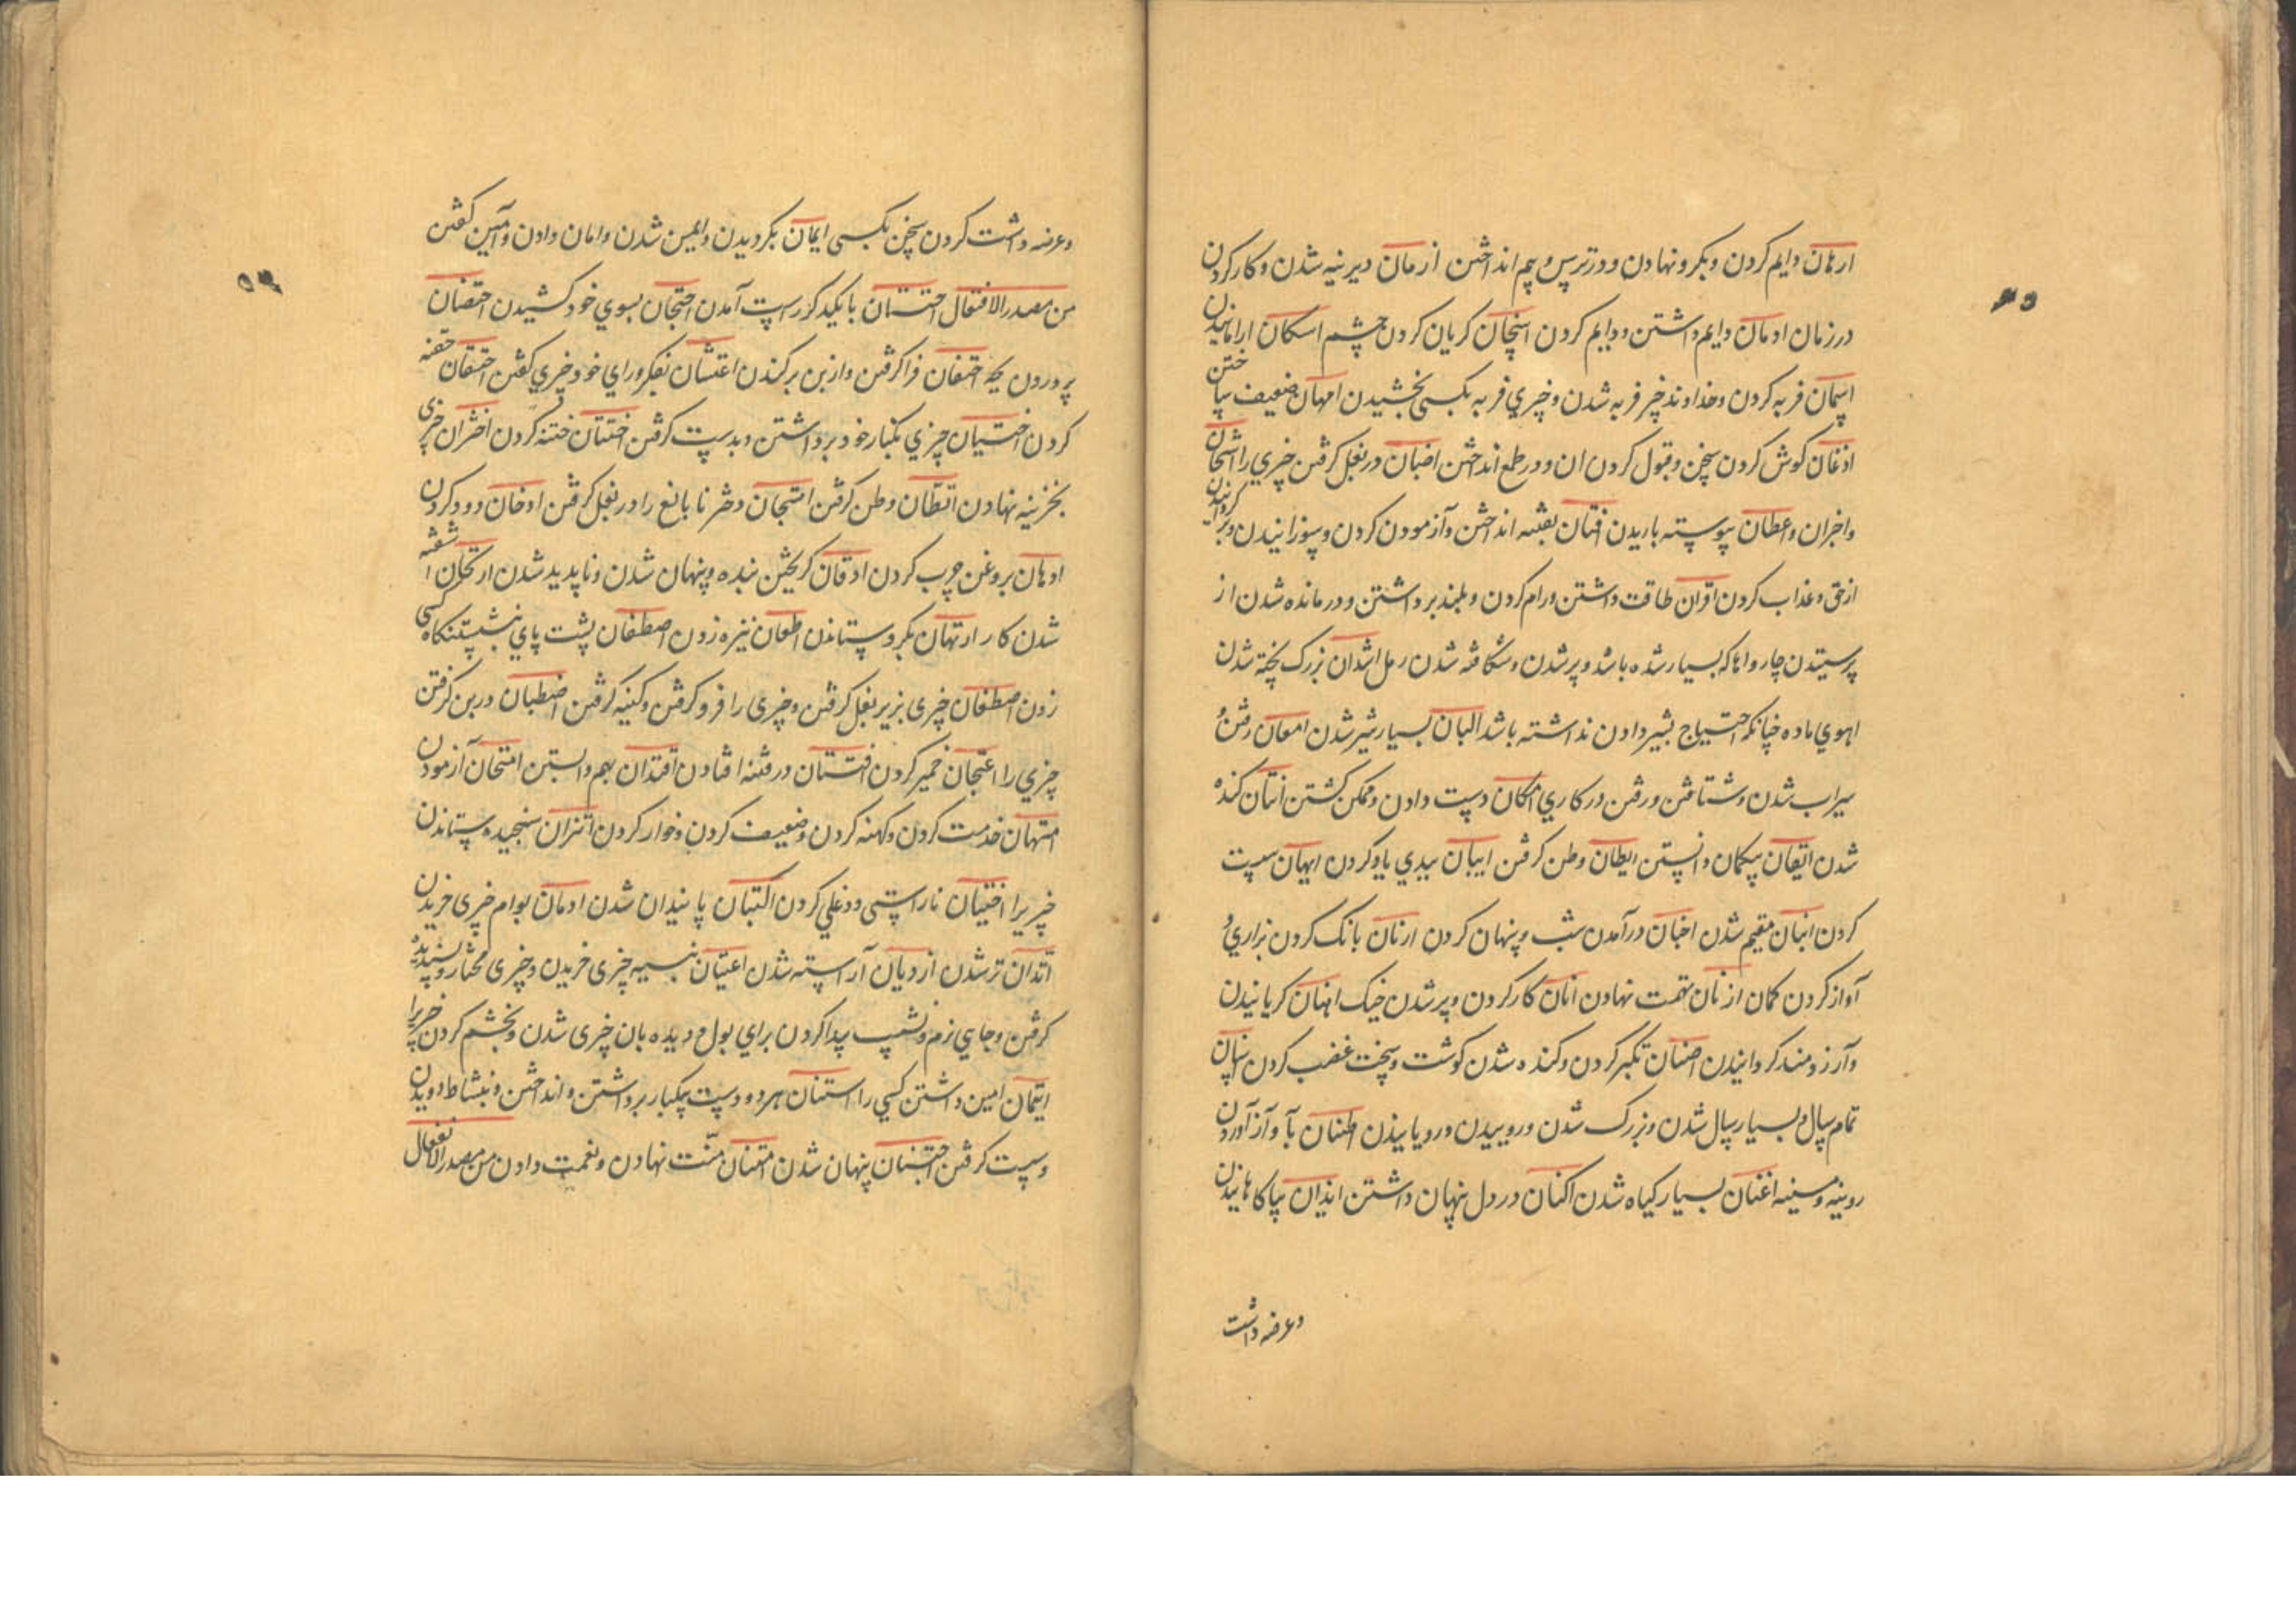 ارهان دایم کردن و بکرو نهادن و در ترس و بیم انداختن ازمان دیرینه شدن و کار کردن
در زمان ادمان دایم داشتن و دایم کردن اسخان کریان کردن چشم اسکان ارامانیدن
اسمان فربه کردن و خداوند چیز فربه شدن و چیزی فربه بکسی بخشیدن امهان ضعیف ساختن
اذعان کوش کردن سخن و قبول کردن ان و در طمع انداختن اضبان در بغل کرفتن چیزی را اشجان
و احزان و اعطان پیوسته باریدن افتان بفتنه انداختن و آزمودن کردن و سوزانیدن و بر کردانیدن
از حق و عذاب کردن اقران طاقت داشتن و رام کردن و بلند برداشتن و درمانده شدن از
پرستیدن چارواها که بسیار شده باشد و پر شدن و شکافته شدن رمل اشدان بزرک پخته شدن
اهوی ماده چنانکه احتیاج بشیر دادن نداشته باشد البان بسیار شیر شدن امعان رفتن و
سیراب شدن و شتافتن و رفتن در کاری امکان دست دادن و ممکن کشتن انتان کنده
شدن ایقان بیکمان دانستن ایطان وطن کرفتن ابنان ببدی یاد کردن ایهان سست
کردن ابنان مقیم شدن اخبان در آمدن شب و پنهان کردن ارنان بانک کردن بزاری و
آواز کردن کمان ازنان تهمت نهادن انان کار کردن و پر شدن خیک اهنان کریانیدن
و آرزومند کردانیدن اصنان تکبر کردن و کنده شدن کوشت و سخت غضب کردن اسنان
تمام سال و بسیار سال شدن و بزرک شدن و روییدن و رویانیدن اطنان بآواز آوردن
رویینه و مسینه اغنان بسیار کیاه شدن اکنان در دل پنهان داشتن ایذان بیاکاهانیدن
و عرضه داشت
و عرضه داشت کردن سخن بکسی ایمان بکردیدن و ایمن شدن و امان دادن و آمین کفتن
من مصدر الافتعال احتتان با یکدکر راست آمدن احتجان بسوی خود کشیدن احتضان
پروردن بچه احتفان فرا کرفتن و از بن برکندن اعتشان بفکر و رای خود چیزی کفتن احتقان حقنه
کردن اختبان چیزی بکنار خود برداشتن و بدست کرفتن اختتان ختنه کردن اختزان چیزی
بخزینه نهادن اتطان وطن کرفتن اهتجان دختر نا بالغ را در بغل کرفتن ادخان دود کردن
ادهان بروغن چرب کردن ادفان کریختن بنده و پنهان شدن و ناپدید شدن ارتکان اشفته
شدن کار ارتهان بکرو ستاندن اطعان نیزه زدن اصطفان پشت پای بنشستنکاه کسی
زدن اصطفان چیزی بزیر بغل کرفتن و چیزی را فرو کرفتن و کینه کرفتن اضطبان در بن کرفتن
چیزی را اعتجان خمیر کردن افتتان در فتنه افتادن اقتران بهم وابستن امتحان آزمودن
امتهان خدمت کردن و کهنه کردن و ضعیف کردن و خوار کردن اتزان سنجیده ستاندن
چیزیرا اختیان ناراستی و دغلی کردن اکتیان پایندان شدن ادیان بوام چیزی خریدن
اتدان تر شدن ازدیان آراسته شدن اعتیان بنسیه چیزی خریدن و چیزی مختار و پسندیده
کرفتن و جای نرم و نشیب پیدا کردن برای بول و دیده بان چیزی شدن و بخشم کردن چیزیرا
ایتمان امین داشتن کسی را استنان هر دو دست بیکبار برداشتن و انداختن و بنشاط دویدن
و سست کرفتن اجتنان پنهان شدن امتنان منت نهادن و نعمت دادن من مصدر الانفعال